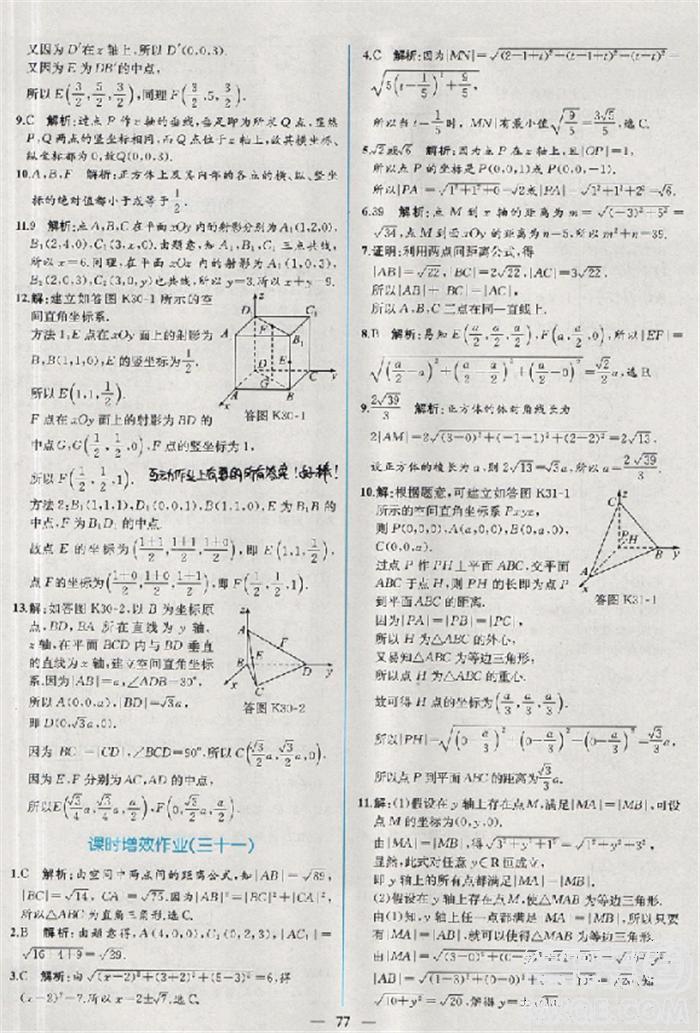 又因为 D′在 z 轴上,所以 D′(0,0,3).
又因为 E 为 DB′的中点,
所以 E(3/2,5/2,3/2),同理 F(3/2,5,3/2).
9.C 解析:过点 P 作 z 轴的垂线,垂足即为所求 Q 点,显然
P、Q 两点的竖坐标相同,而 Q 点位于 z 轴上,故其横坐标、
纵坐标都为 0,故 Q(0,0,3).
10.A、B、F 解析:正方体上及其内部的各点的横、纵、竖坐
标的绝对值都小于或等于 1/2.
11.9 解析:点 A,B,C 在平面 xOy 内的射影分别为 A₁(1,2,0),
B₁(2,4,0),C₁(3,x,0).由题意,知 A₁,B₁,C₁ 三点共线,
所以 x=6.同理,在平面 xOz 内的射影 A₂(1,0,1),
B₂(2,0,2),C₂(3,0,y)也共线,所以 y=3.所以 x+y=9.
12.解:建立如答图 K30-1 所示的空
间直角坐标系.
方法 1,E 点在 xOy 面上的射影为
B,B(1,1,0),E 的竖坐标为 1/2,
所以 E(1,1,1/2).
F 点在 xOy 面上的射影为 BD 的
中点 G,G(1/2,1/2,0),F 点的竖坐标为 1,
所以 F(1/2,1/2,1).
z
D₁ C₁
A₁ B₁
F
E
D C y
G
A B
x
答图 K30-1
方法 2:B₁(1,1,1),D₁(0,0,1),B(1,1,0),E 为 B₁B 的
中点,F 为 B₁D₁ 的中点.
故点 E 的坐标为((1+1)/2,(1+1)/2,(1+0)/2),即 E(1,1,1/2),
点 F 的坐标为((1+0)/2,(1+0)/2,(1+1)/2),即 F(1/2,1/2,1).
13.解:如答图 K30-2,以 B 为坐标原
点,BD 所在直线为 y 轴,BA 为
z 轴,在平面 BCD 内与 BD 垂直
的直线为 x 轴,建立空间直角坐标
系.因为|AB|=a,∠ADB=30°,
所以 A(0,0,a),|BD|=√3a,
即 D(0,√3a,0).
z
A
F
E
B D y
C
x
答图 K30-2
因为|BC|=|CD|,∠BCD=90°,所以 C(√3/2 a,√3/2 a,0).
因为 E,F 分别为 AC,AD 的中点,
所以 E(√3/4 a,√3/4 a,a/2),F(0,√3/2 a,a/2).
课时增效作业(三十一)
1.C 解析:由空间中两点间的距离公式,知|AB|=√89,
|BC|=√14,|CA|=√75.因为|AB|²=|BC|²+|CA|²,
所以△ABC 为直角三角形.
2.B 解析:由题意得,A(4,0,0),C₁(0,2,3),|AC₁|=
√(16+4+9)=√29.
3.C 解析:由√((x−2)²+(3+2)²+(5−3)²)=6,得
(x−2)²=7.所以 x−2=±√7.故选 C.
4.C 解析:因为|MN|=√((2−1+t)²+(t−1+t)²+(t−t)²)=
√(5(t−1/5)²+9/5),
所以当 t=1/5 时,|MN|有最小值√(9/5)=3√5/5,选 C.
5.√2或√6 解析:因为点 P 在 z 轴上,且|OP|=1,
所以点 P 的坐标是 P(0,0,1)或 P(0,0,−1).
所以|PA|=√(1²+1²+0²)=√2或|PA|=√(1²+1²+2²)=√6.
6.39 解析:点 M 到 x 轴的距离为 m=√((−3)²+5²)=
√34,点 M 到面 xOy 的距离为 n=5,所以 m²+n=39.
7.证明:利用两点间距离公式,得
|AB|=√22,|BC|=2√22,|AC|=3√22.
所以|AB|+|BC|=|AC|.
所以 A,B,C 三点在同一直线上.
8.B 解析:易知 E(a,a/2,a/2),F(a/2,a,0),所以|EF|=
√((a/2−a)²+(a−a/2)²+(0−a/2)²)
9.2√39/3 解析:正方体的体对角线长为
2|AM|=2√((3−0)²+(−1−1)²+(2−2)²)=2√13.
设正方体的棱长为 a,则 2√13=√3a,所以 a=2√39/3.
10.解:根据题意,可建立如答图 K31-1
所示的空间直角坐标系 Pxyz,
则 P(0,0,0),A(a,0,0),B(0,a,0),
C(0,0,a).
过点 P 作 PH⊥平面 ABC,交平面
ABC 于点 H,则 PH 的长即为点 P 到
平面 ABC 的距离.
z
C
P H
B y
A
x
答图 K31-1
因为|PA|=|PB|=|PC|,
所以 H 为△ABC 的外心,
又易知△ABC 为等边三角形,
所以点 H 为△ABC 的重心.
故可得 H 点的坐标为(a/3,a/3,a/3).
所以|PH|=√((0−a/3)²+(0−a/3)²+(0−a/3)²)=√3/3 a.
所以点 P 到平面 ABC 的距离为√3/3 a.
11.解:(1)假设在 y 轴上存在点 M,满足|MA|=|MB|,可设点
M 的坐标为(0,y,0).
由|MA|=|MB|,得√(3²+y²+1²)=√(1²+y²+3²),
显然,此式对任意 y∈R 恒成立.
即 y 轴上的所有点都满足|MA|=|MB|.
(2)假设在 y 轴上存在点 M,使△MAB 为等边三角形.
由(1)知,y 轴上任一点都满足|MA|=|MB|,所以只要有
|MA|=|AB|,就可以使△MAB 为等边三角形.
77